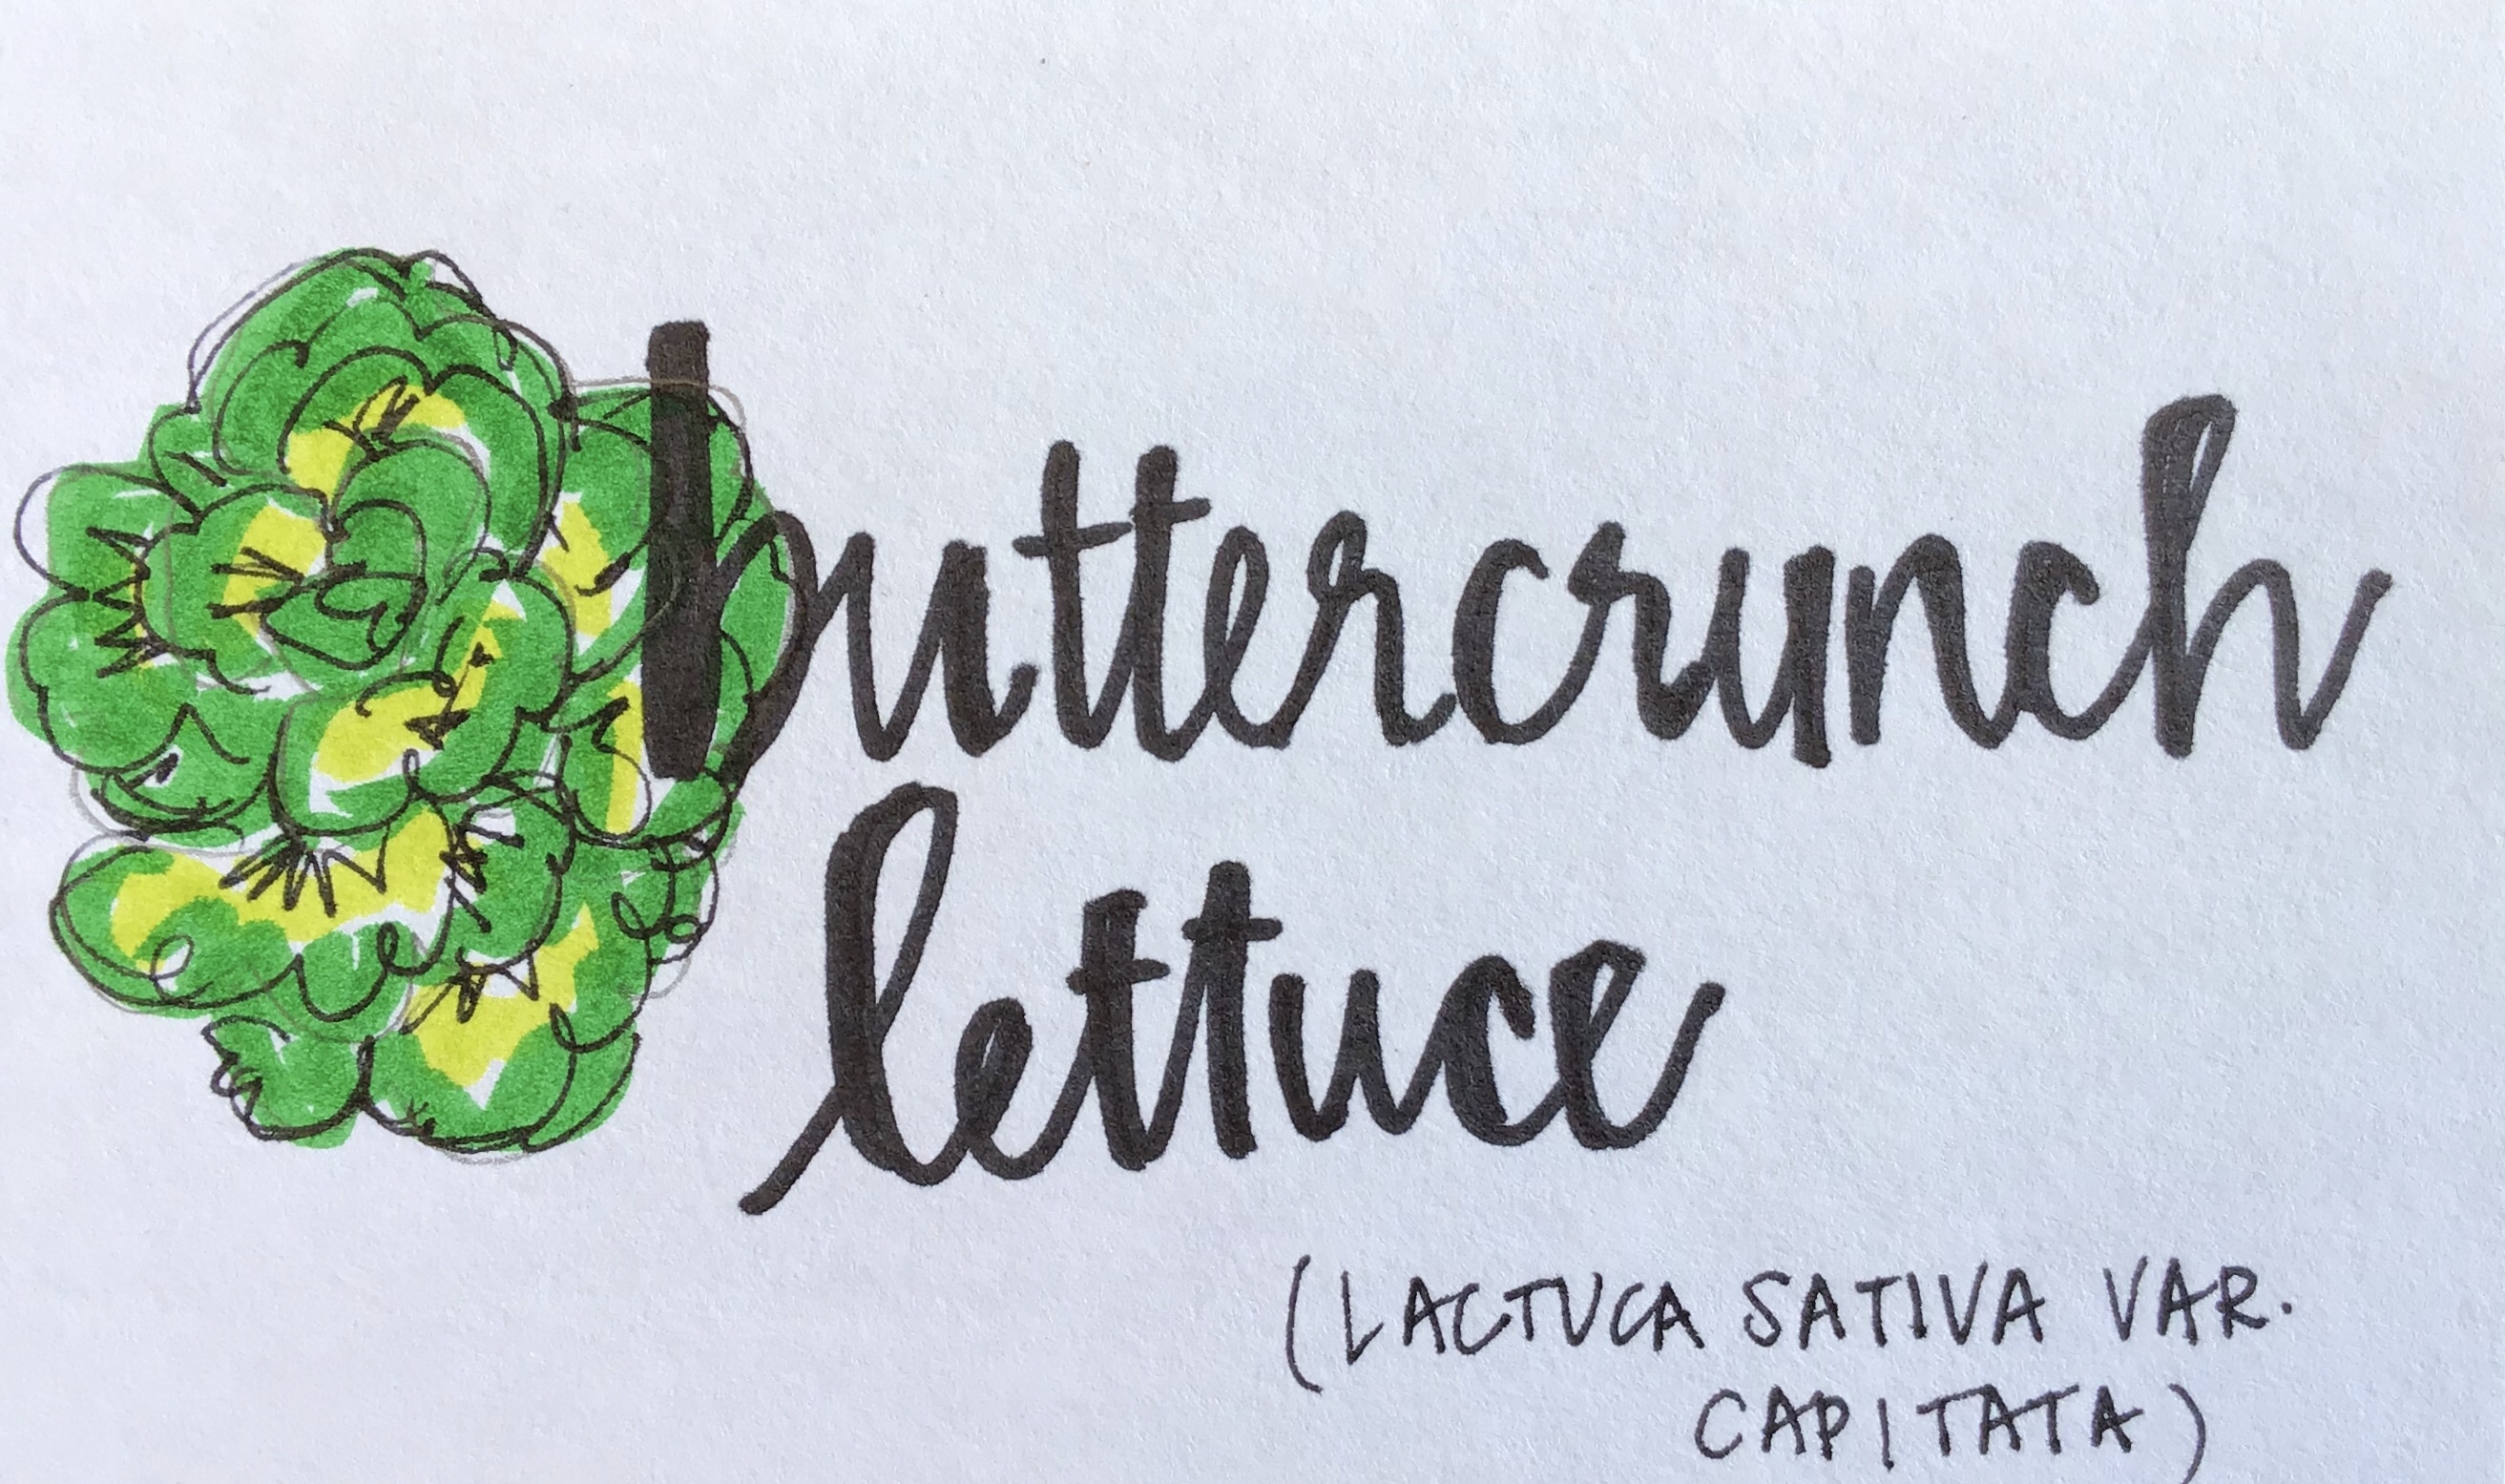 buttercrunch
lettuce
(LACTUCA SATIVA VAR.
CAPITATA)